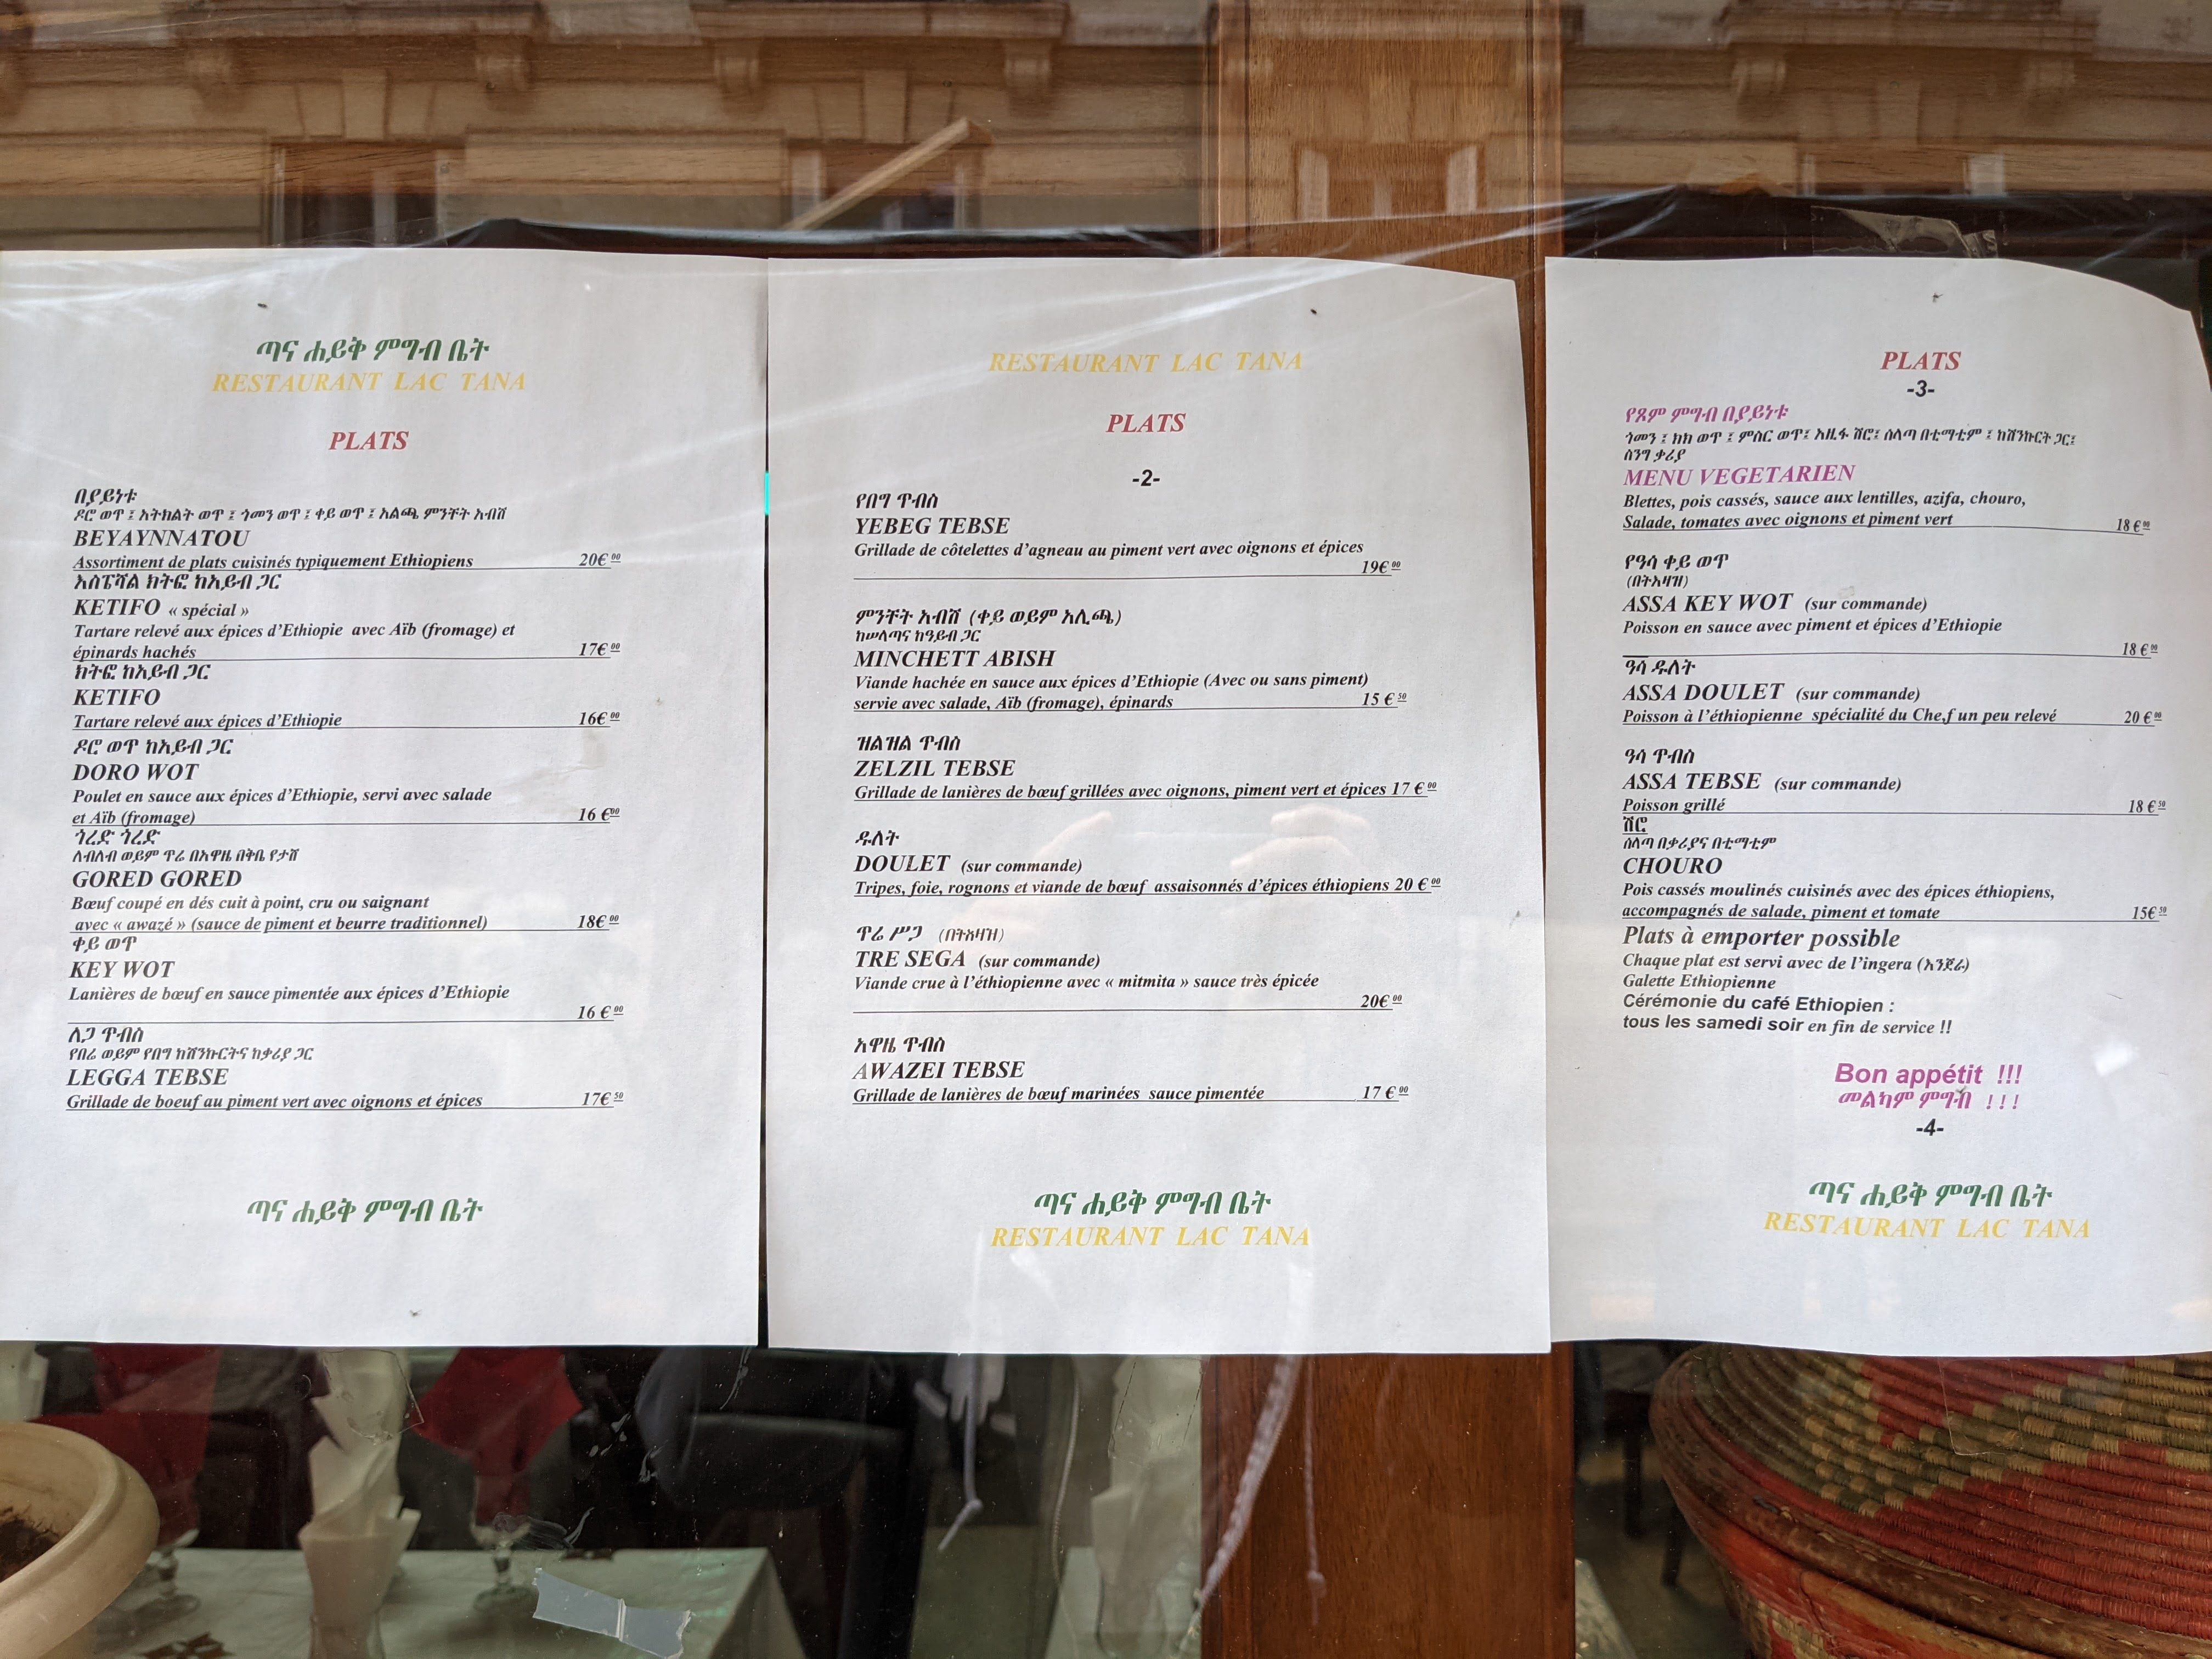 ጣና ሐይቅ ምግብ ቤት
RESTAURANT LAC TANA
PLATS
በያይነቱ
ዶሮ ወጥ ፤ አትክልት ወጥ ፤ ጎመን ወጥ ፤ ቀይ ወጥ ፤ አልጫ ምንቸት አብሽ
BEYAYNNATOU
Assortiment de plats cuisinés typiquement Ethiopiens 20€ 00
እስፔሻል ክትፎ ከአይብ ጋር
KETIFO « spécial »
Tartare relevé aux épices d'Ethiopie avec Aïb (fromage) et
épinards hachés 17€ 00
ክትፎ ከአይብ ጋር
KETIFO
Tartare relevé aux épices d'Ethiopie 16€ 00
ዶሮ ወጥ ከአይብ ጋር
DORO WOT
Poulet en sauce aux épices d'Ethiopie, servi avec salade
et Aïb (fromage) 16 €00
ጎረድ ጎረድ
ለብለብ ወይም ጥሬ በአዋዜ በቅቤ የታሸ
GORED GORED
Bœuf coupé en dés cuit à point, cru ou saignant
avec « awazé » (sauce de piment et beurre traditionnel) 18€ 00
ቀይ ወጥ
KEY WOT
Lanières de bœuf en sauce pimentée aux épices d'Ethiopie
16 € 00
ለጋ ጥብስ
የበሬ ወይም የበግ ከሽንኩርትና ከቃሪያ ጋር
LEGGA TEBSE
Grillade de boeuf au piment vert avec oignons et épices 17€ 50
ጣና ሐይቅ ምግብ ቤት
RESTAURANT LAC TANA
PLATS
-2-
የበግ ጥብስ
YEBEG TEBSE
Grillade de côtelettes d'agneau au piment vert avec oignons et épices
19€ 00
ምንቸት አብሽ (ቀይ ወይም አሊጫ)
ከሠለጣና ከዓይብ ጋር
MINCHETT ABISH
Viande hachée en sauce aux épices d'Ethiopie (Avec ou sans piment)
servie avec salade, Aïb (fromage), épinards 15 € 50
ዝልዝል ጥብስ
ZELZIL TEBSE
Grillade de lanières de bœuf grillées avec oignons, piment vert et épices 17 € 00
ዱለት
DOULET (sur commande)
Tripes, foie, rognons et viande de bœuf assaisonnés d'épices éthiopiens 20 € 00
ጥሬ ሥጋ (በትአዛዝ)
TRE SEGA (sur commande)
Viande crue à l'éthiopienne avec « mitmita » sauce très épicée
20€ 00
አዋዜ ጥብስ
AWAZEI TEBSE
Grillade de lanières de bœuf marinées sauce pimentée 17 € 00
ጣና ሐይቅ ምግብ ቤት
RESTAURANT LAC TANA
PLATS
-3-
የጾም ምግብ በያይነቱ
ጎመን ፤ ክክ ወጥ ፤ ምስር ወጥ፤ አዚፋ ሽሮ፤ ሰላጣ በቲማቲም ፤ ከሽንኩርት ጋር፤
ስንግ ቃሪያ
MENU VEGETARIEN
Blettes, pois cassés, sauce aux lentilles, azifa, chouro,
Salade, tomates avec oignons et piment vert 18 € 00
የዓሳ ቀይ ወጥ
(በትአዛዝ)
ASSA KEY WOT (sur commande)
Poisson en sauce avec piment et épices d'Ethiopie
18 € 00
ዓሳ ዱለት
ASSA DOULET (sur commande)
Poisson à l'éthiopienne spécialité du Che,f un peu relevé 20 € 00
ዓሳ ጥብስ
ASSA TEBSE (sur commande)
Poisson grillé 18 € 50
ሽሮ
ሰላጣ በቃሪያና በቲማቲም
CHOURO
Pois cassés moulinés cuisinés avec des épices éthiopiens,
accompagnés de salade, piment et tomate 15€ 50
Plats à emporter possible
Chaque plat est servi avec de l'ingera (እንጀራ)
Galette Ethiopienne
Cérémonie du café Ethiopien :
tous les samedi soir en fin de service !!
Bon appétit !!!
መልካም ምግብ !!!
-4-
ጣና ሐይቅ ምግብ ቤት
RESTAURANT LAC TANA